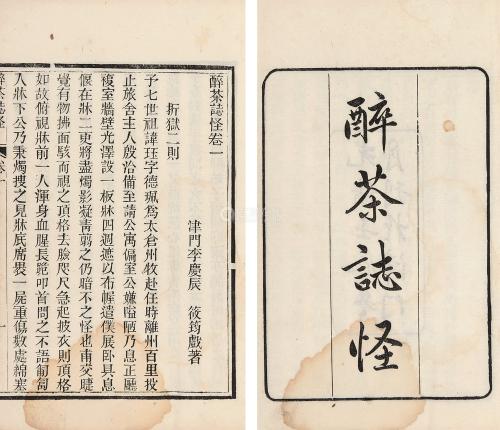 醉茶誌怪
醉茶誌怪卷一
津門李慶辰 筱筠戲著
折獄二則
予七世祖諱珏字德珮為太倉州牧赴任時離州百里投
止旅舍主人殷洽備至請公寓偏室公嫌嗌陋乃息正廳
複室牆壁光澤設一板牀四週遮以布幄遣僕展卧具息
偃在牀二更將盡燭影凝青翦之仍暗不之怪也甫交睫
覺有物拂面駭而視之頂格去臉咫尺急起披衣則頂格
如故俯視牀前一人渾身血腥長跪叩首問之不語匍匐
入牀下公乃秉燭搜之見牀底席裹一屍重傷數處綿塞
醉茶誌怪 卷一 一